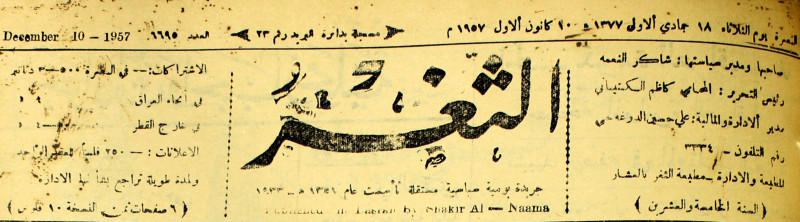 البصرة يوم الثلاثاء ١٨ جمادي الأول ١٣٧٧ هـ ١٠ كانون الأول ١٩٥٧ م
مسجلة بدائرة البريد رقم ٢٣
العدد ٦٦٩٥
December 10 - 1957
صاحبها ومدير سياستها : شاكر النعمه
رئيس التحرير : المحامي كاظم
مدير الادارة والمالية : علي حسين
رقم التلفون - ٣٣٣٤
المطبعة والادارة - مطبعة الثغر بالعشار
( السنة الخامسة والعشرين )
الثغر
جريدة يومية سياسية مستقلة تأسست عام ١٣٥١ هـ - ١٩٣٣
Published in Basrah by Shakir Al - Naama
الاشتراكات :- في البصرة ٣-٥٠٠ دنانير
في أنحاء العراق
في خارج القطر
الاعلانات :- ٢٥٠ فلساً للعقد الواحد
ولمدة طويلة تراجع بشأنها الادارة
( ٦ صفحات ثمن النسخة ١٠ فلوس )